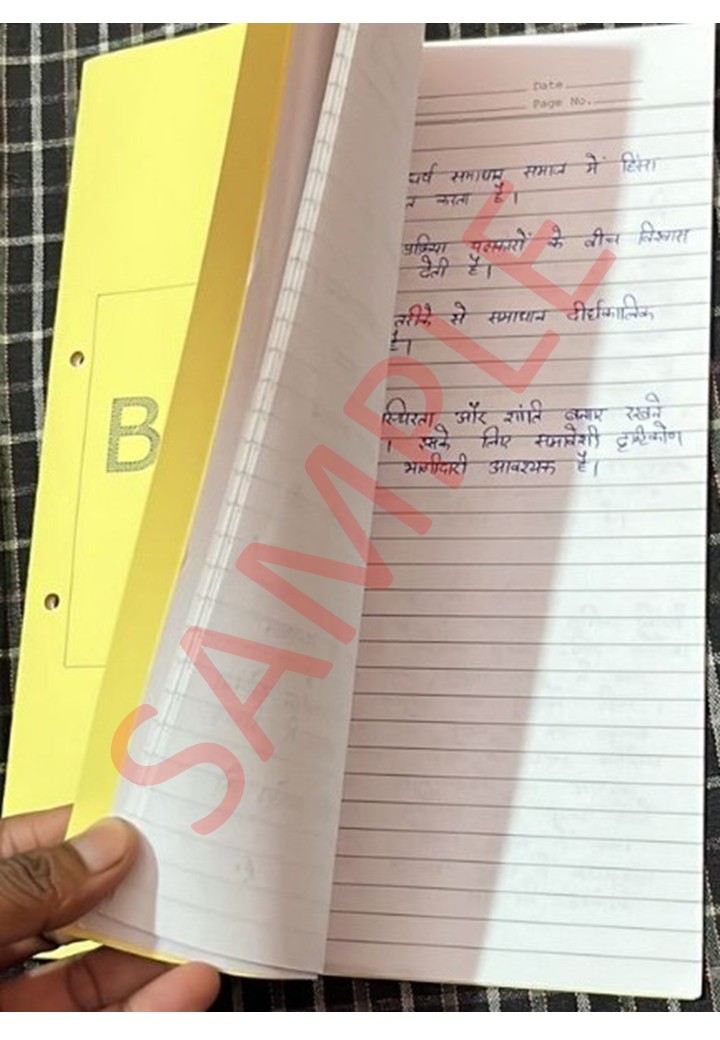 Date
Page No.
समाधान समाज में हिंसा
करता है।
के बीच विश्वास
देती है।
तरीके से समाधान दीर्घकालिक
है।
स्थिरता और शांति बनाए रखने
। इसके लिए समावेशी दृष्टिकोण
भागीदारी आवश्यक है।
B
SAMPLE